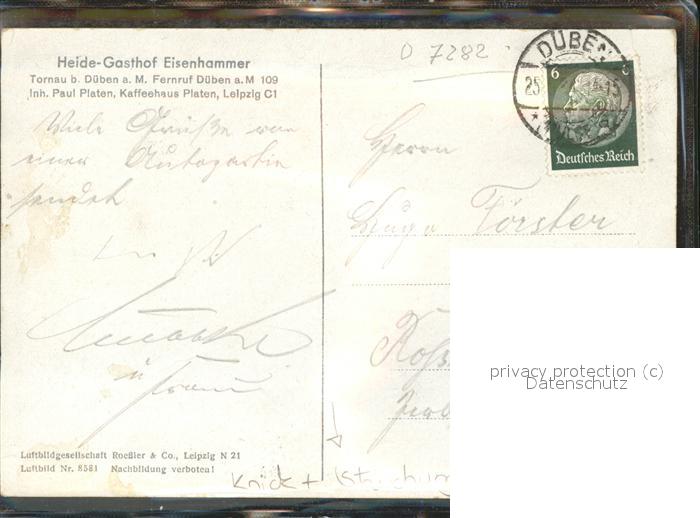 Heide-Gasthof Eisenhammer
Tornau b. Düben a. M. Fernruf Düben a. M 109
Inh. Paul Platen, Kaffeehaus Platen, Leipzig C1
Viele Grüße von
einer Autopartie
sendet
u Frau
Luftbildgesellschaft Roeßler & Co., Leipzig N 21
Luftbild Nr. 8581 Nachbildung verboten!
O 7282
DÜBEN
25
6 6
Deutsches Reich
Herrn
Hugo Förster
privacy protection (c)
Datenschutz
Knick +